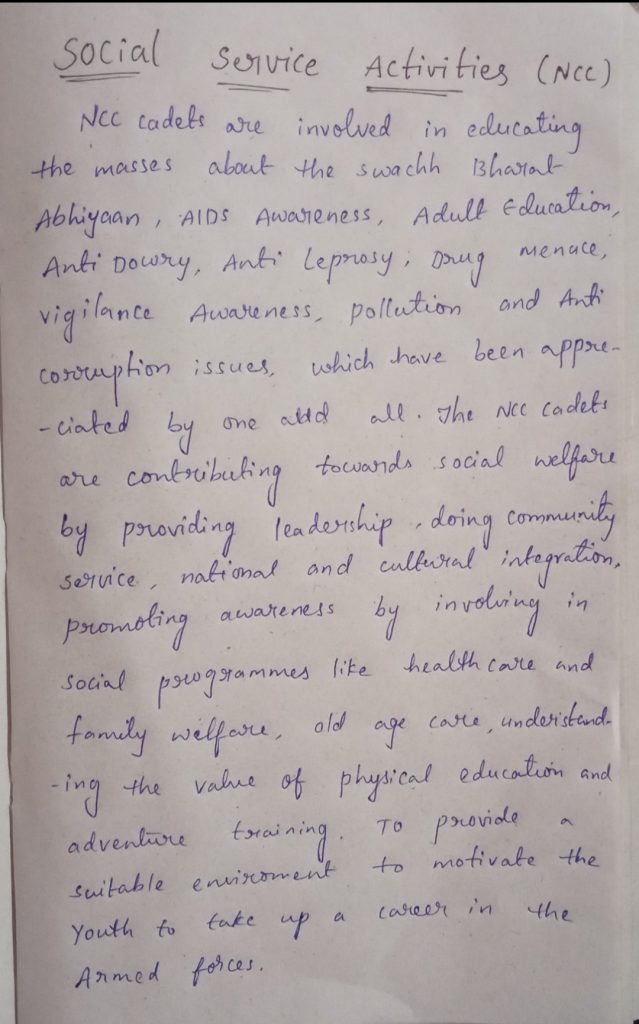 Social Service Activities (NCC)
NCC cadets are involved in educating
the masses about the swachh Bharat
Abhiyaan, AIDS Awareness, Adult Education,
Anti Dowry, Anti Leprosy, Drug menace,
vigilance Awareness, pollution and Anti
corruption issues, which have been appre-
-ciated by one and all. The NCC cadets
are contributing towards social welfare
by providing leadership, doing community
service, national and cultural integration,
promoting awareness by involving in
social programmes like health care and
family welfare, old age care, understand-
-ing the value of physical education and
adventure training. To provide a
suitable enviroment to motivate the
Youth to take up a career in the
Armed forces.